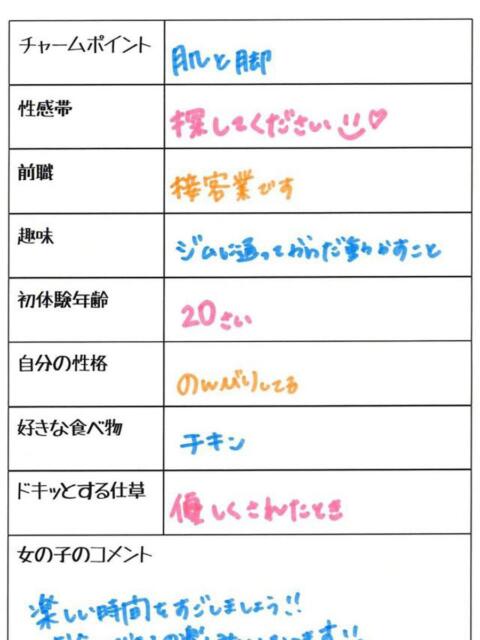 チャームポイント
肌と脚
性感帯
探してください
前職
接客業です
趣味
ジムに通ってからだ動かすこと
初体験年齢
20さい
自分の性格
のんびりしてる
好きな食べ物
チキン
ドキッとする仕草
優しくされたとき
女の子のコメント
楽しい時間をすごしましょう!!